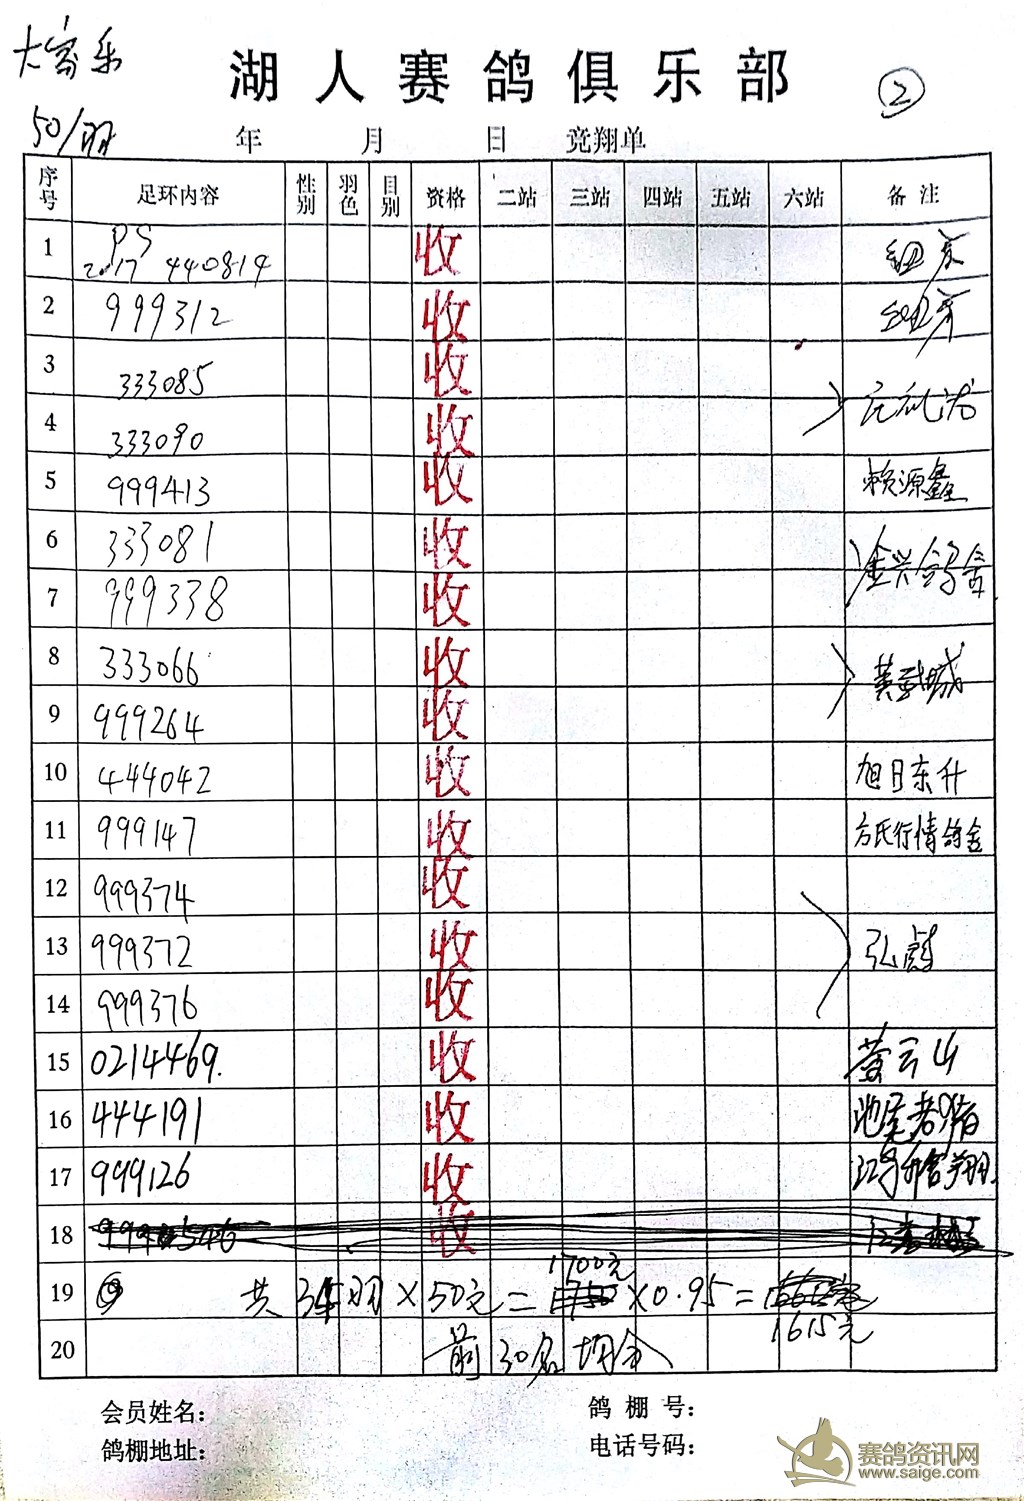 大家乐
湖人赛鸽俱乐部
②
50/羽 年 月 日 竞翔单
序号 足环内容 性别 羽色 目别 资格 二站 三站 四站 五站 六站 备注
1 PS 2017 440814 收
2 999312 收
3 333085 收
4 333090 收
5 999413 收 赖源鑫
6 333081 收 金兴鸽舍
7 999338 收
8 333066 收
9 999264 收
10 444042 收 旭日东升
11 999147 收 方氏行情鸽舍
12 999374 收
13 999372 收
14 999376 收
15 0214469. 收
16 444191 收
17 999126 收
18 收
19 共 34羽×50元= 1700元 ×0.95= 1615元
20 前 30名 均分
会员姓名： 鸽棚号：
鸽棚地址： 电话号码：
赛鸽资讯网
www.saige.com